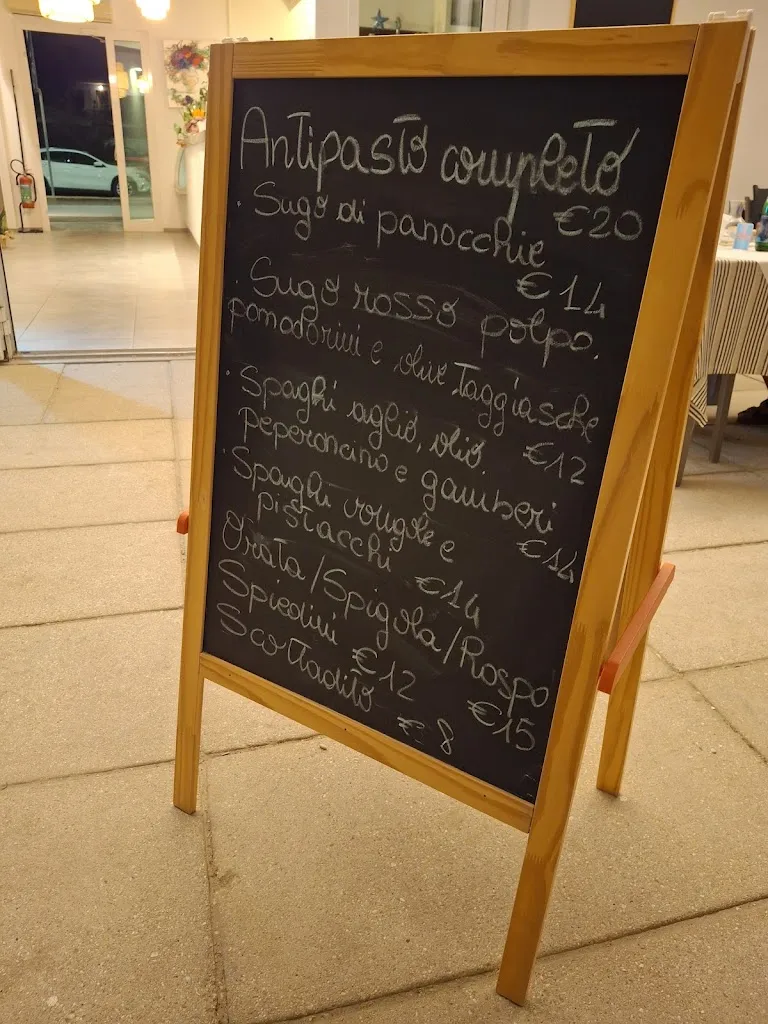 Antipasto completo
€20
· Sugo di panocchie
€14
Sugo rosso polpo,
pomodorini e olive Taggiasche
€12
· Spaghi aglio, olio,
peperoncino e gamberi
€14
· Spaghi vongole e
pistacchi €14
Orata/Spigola/Rospo
€15
Spiedini €12
Scottadito
€8